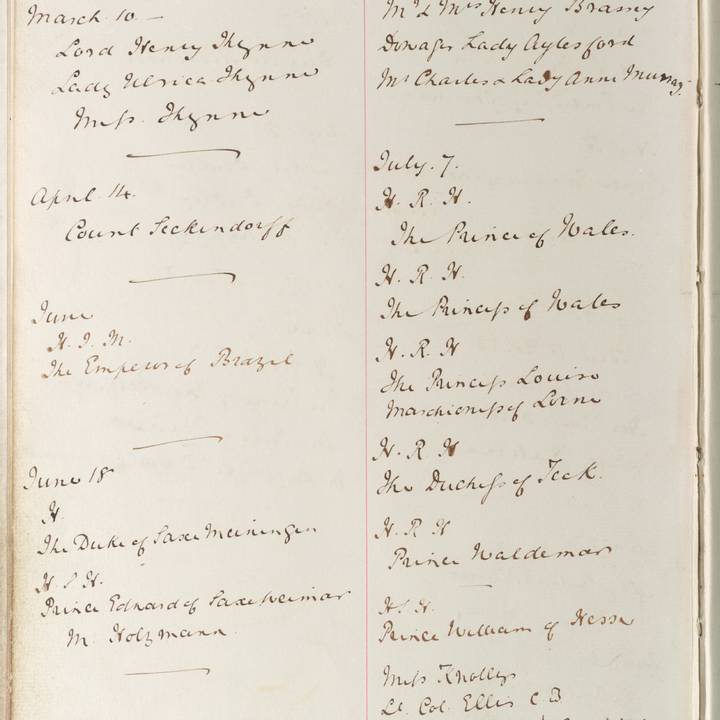 March 10 —
Lord Henry Thynne
Lady Ulrica Thynne
Miss Thynne
April 14.
Count Seckendorff
June
H. I. M.
The Emperor of Brazil
June 18
H.
The Duke of Saxe Meiningen
H. S. H.
Prince Edward of Saxe Weimar
M. Holzmann
Mr & Mrs Henry Brassey
Dowager Lady Aylesford
Mr Charles & Lady Anne Murray.
July. 7.
H. R. H.
The Prince of Wales.
H. R. H.
The Princess of Wales
H. R. H
The Princess Louise
Marchioness of Lorne
H. R. H
The Duchess of Teck.
H. R. H
Prince Waldemar
H S. H.
Prince William of Hesse
Miss Knollys
Lt. Col. Ellis C B